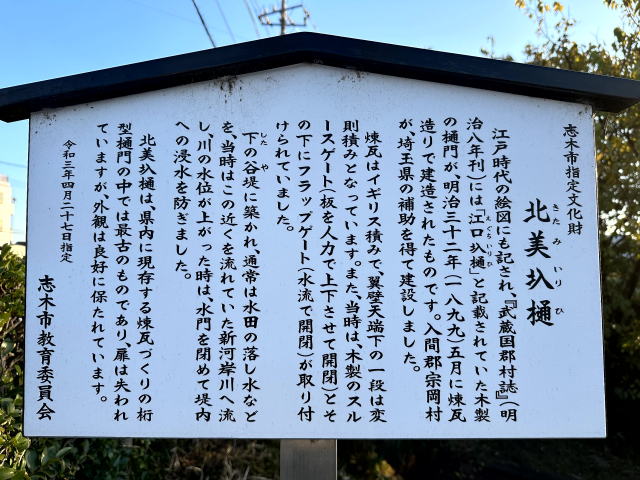 志木市指定文化財
北美圦樋
きたみいりひ
江戸時代の絵図にも記され、『武蔵国郡村誌』(明
治八年刊)には「江口圦樋」と記載されていた木製
えぐちいりひ
の樋門が、明治三十二年(一八九九)五月に煉瓦
造りで建造されたものです。入間郡宗岡村
が、埼玉県の補助を得て建設しました。
煉瓦はイギリス積みで、翼壁天端下の一段は変
則積みとなっています。また、当時は、木製のスル
ースゲート(板を人力で上下させて開閉)とそ
の下にフラップゲート(水流で開閉)が取り付
けられていました。
下の谷堤に築かれ、通常は水田の落し水など
したやや
を、当時はこの近くを流れていた新河岸川へ流
し、川の水位が上がった時は、水門を閉めて堤内
への浸水を防ぎました。
北美圦樋は、県内に現存する煉瓦づくりの桁
型樋門の中では最古のものであり、扉は失われ
ていますが、外観は良好に保たれています。
令和三年四月二十七日指定
志木市教育委員会